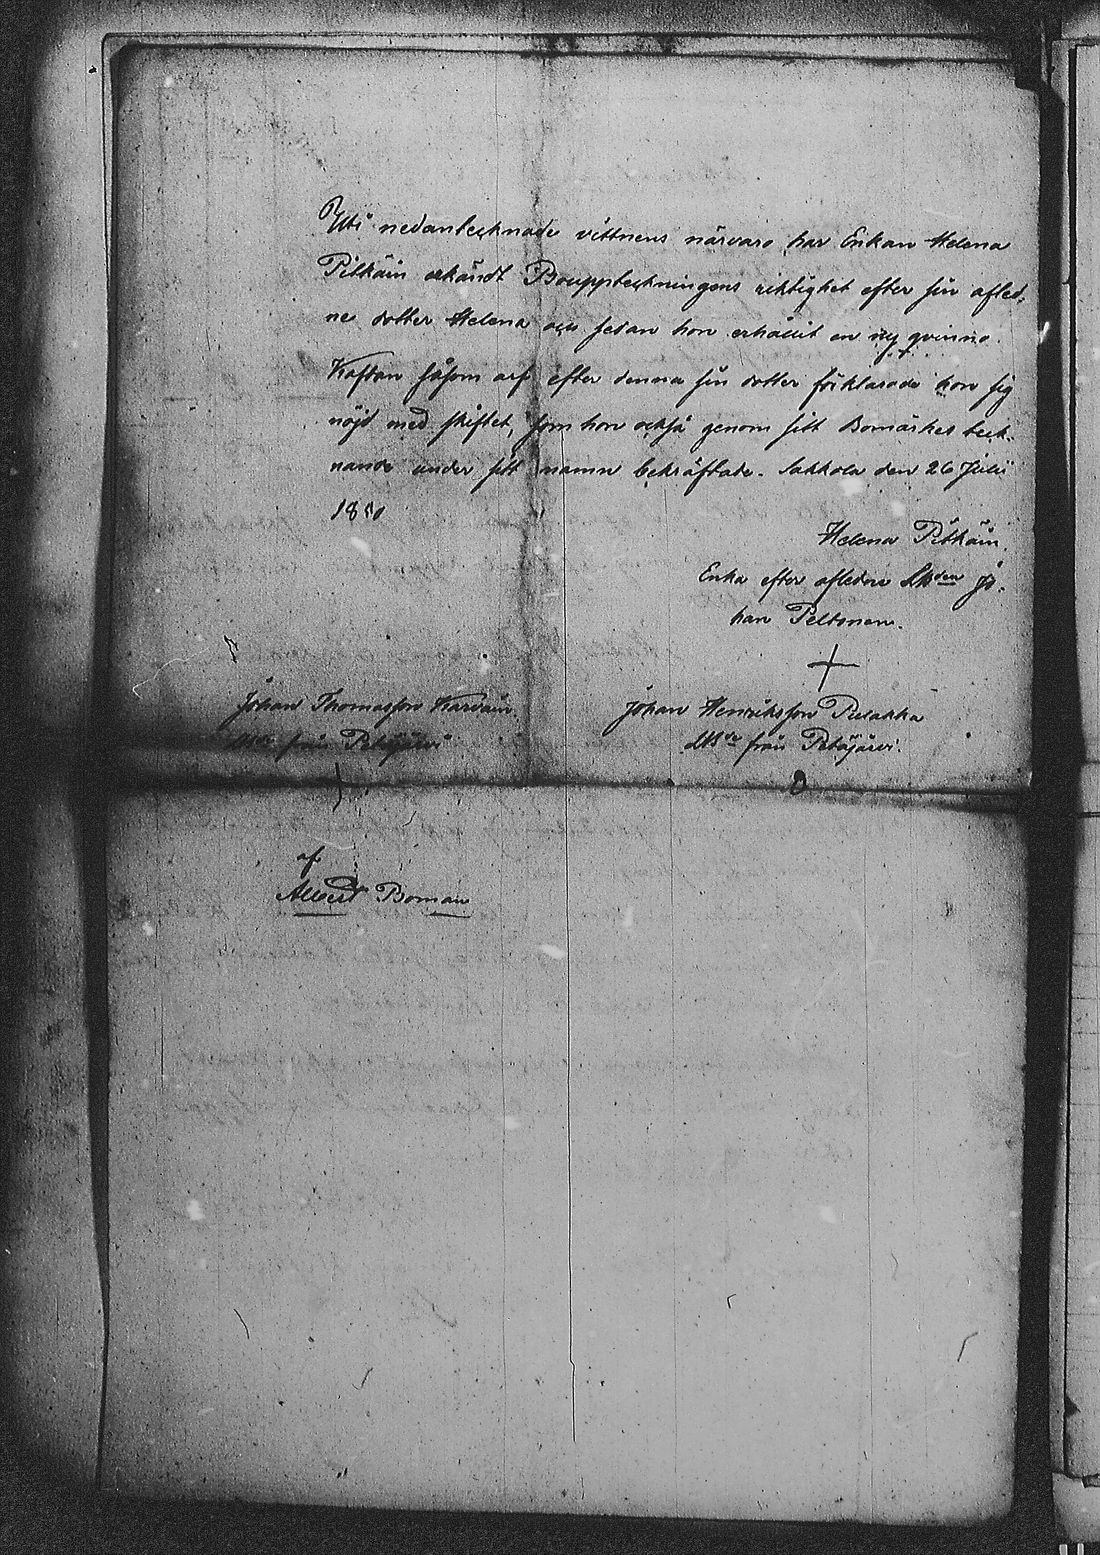 Uti nedantecknade vittnens närvaro har Enkan Helena
Pitkäin erkändt Bouppteckningens riktighet efter sin afled-
ne dotter Helena och sedan hon erhållit en ny qvinno
Kaftan såsom arf efter denna sin dotter förklarade hon sig
nöjd med skiftet, som hon också genom sitt Bomärkes teck-
nande under sitt namn bekräftade. Sakkola den 26 Julii
1850
Helena Pitkäin,
Enka efter afledne Jo-
han Peltonen.
Johan Thomasson Karvain
från Petäjärvi
Johan Henriksson Pulakka
från Petäjärvi.
af
Albert Boman